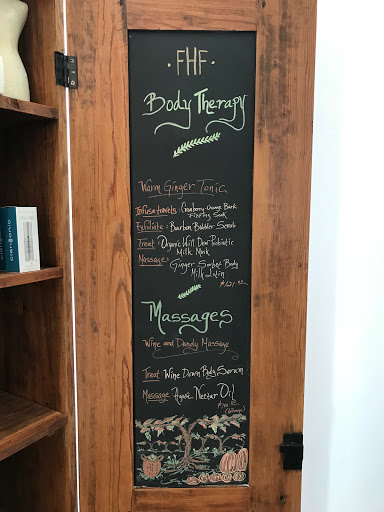 · FHF ·
Body Therapy
Warm Ginger Tonic
Infuse towels: Cranberry-Orange Bark
Fizzing Soak
Exfoliate: Bourbon Bubbler Scrub
Treat: Organic Will Dew Probiotic
Milk Mask
Massage: Ginger Sorbet Body
Milk
Massages
Wine and Dandy Massage
Treat: Wine Down Body Serum
Massage: Agave Nectar Oil